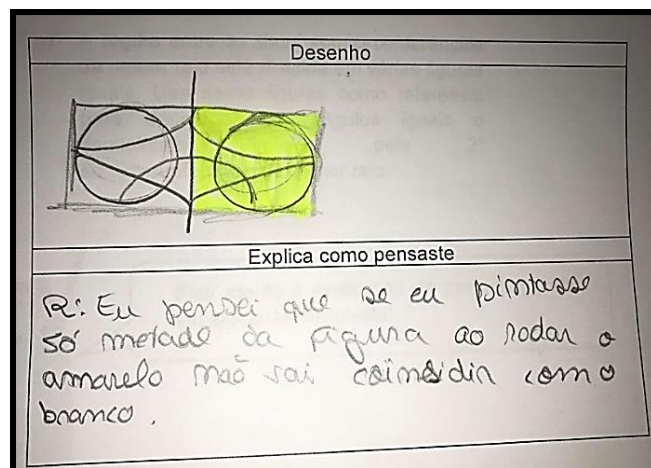 Desenho
Explica como pensaste
R: Eu pensei que se eu pintasse
só metade da figura ao rodar o
amarelo não vai coinsidir com o
branco.